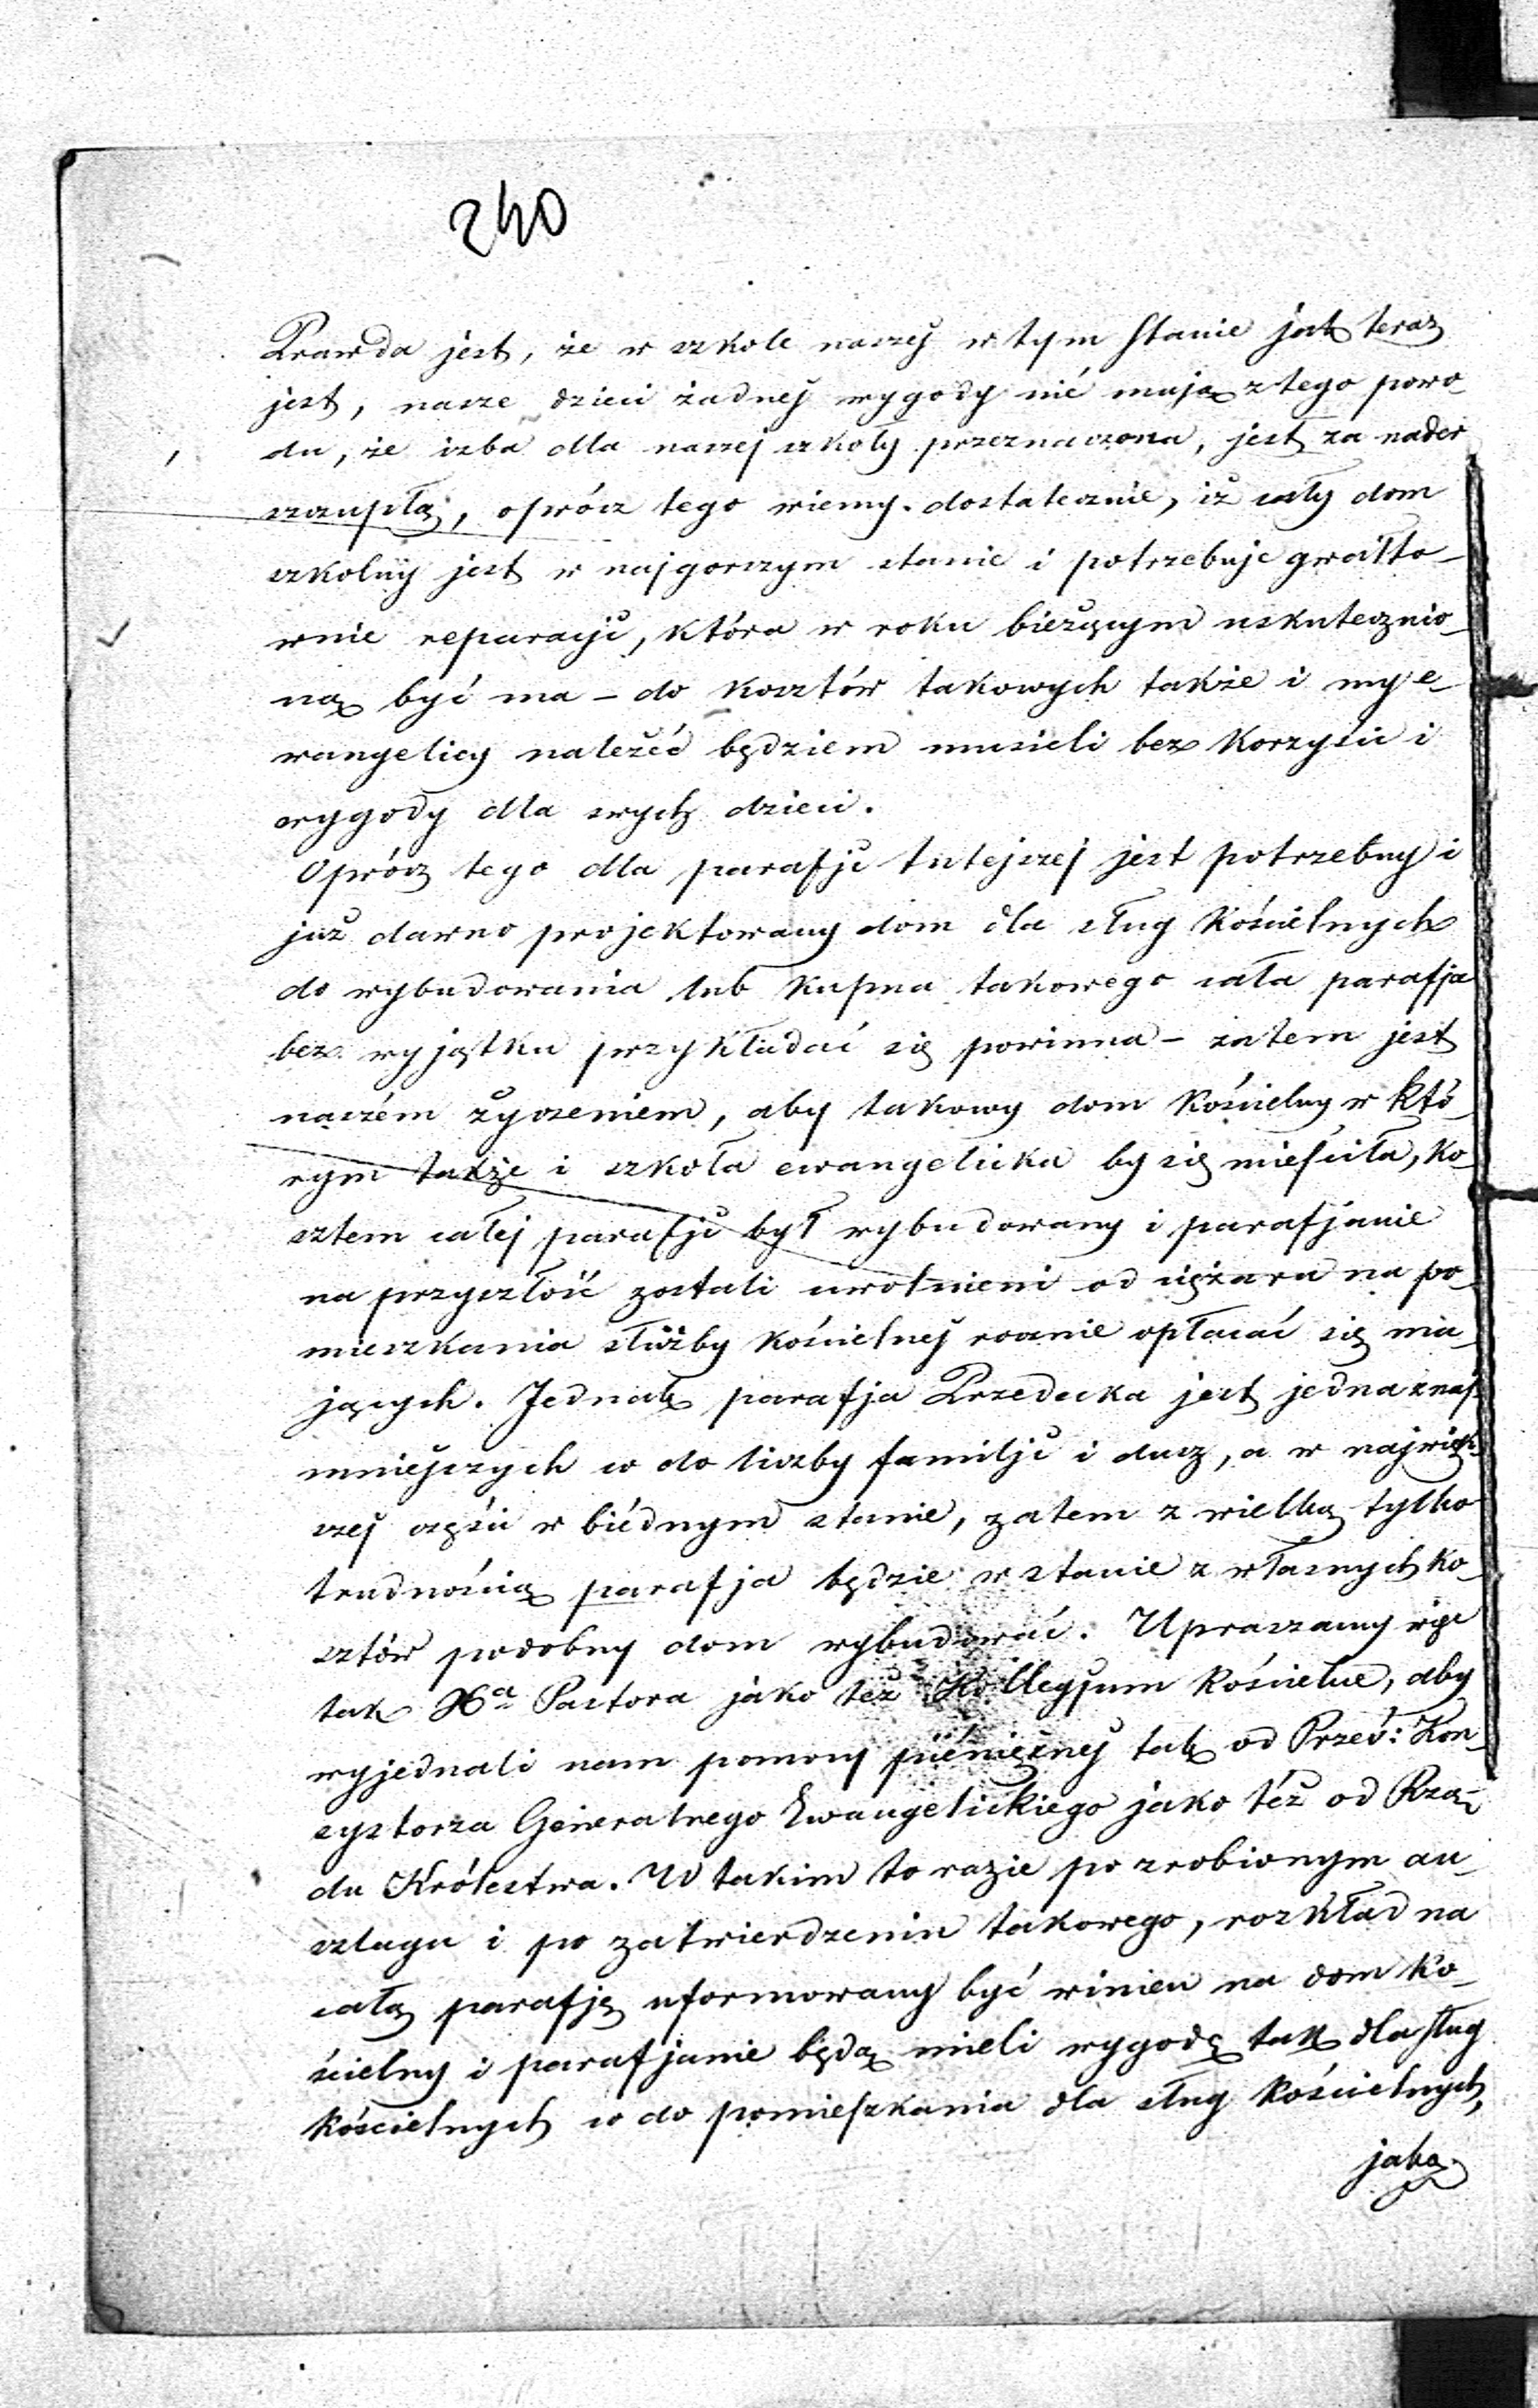 240
Prawda jest, że w szkole naszej w tym stanie jak teraz
jest, nasze dzieci żadnej wygody nié mają z tego powo-
du, że izba dla naszej szkoły przeznaczona, jest za nader
szczupłą, oprócz tego wiemy dostatecznie, iż cały dom
szkolny jest w najgorszym stanie i potrzebuje gwałto-
wnie reparacji, która w roku bieżącym uskutecznio-
ną być ma – do kosztów takowych także i my e-
wangelicy należéć będziem musieli bez korzyści i
wygody dla swych dzieci.
Oprócz tego dla parafji tutejszej jest potrzebny i
już dawno projektowany dom dla sług kościelnych
do wybudowania lub kupna takowego cała parafja
bez wyjątku przykładać się powinna – zatem jest
naszém życzeniem, aby takowy dom kościelny w któ-
rym także i szkoła ewangelicka by się mieściła, ko-
sztem całej parafji był wybudowany i parafjanie
na przyszłość zostali uwolnieni od ciężaru na po-
mieszkania służby kościelnej rocznie opłacać się ma-
jących. Jednak parafja Przedecka jest jedna z naj-
mniejszych co do liczby familji i dusz, a w najwięk-
szej części w biédnym stanie, zatem z wielką tylko
trudnością parafja będzie w stanie z własnych ko-
sztów podobny dom wybudować. Upraszamy więc
tak Xa Pastora jako też Kollegjum kościelne, aby
wyjednali nam pomocy piéniężnej tak od Prześ: Kon-
systorza Generalnego Ewangelickiego jako téż od Rzą-
du Królestwa. W takim to razie po zrobionym an-
szlagu i po zatwierdzeniu takowego, rozkład na
całą parafję uformowany być winien na dom ko-
ścielny i parafjanie będą mieli wygodę tak dla sług
kościelnych co do pomieszkania dla sług kościelnych,
jako